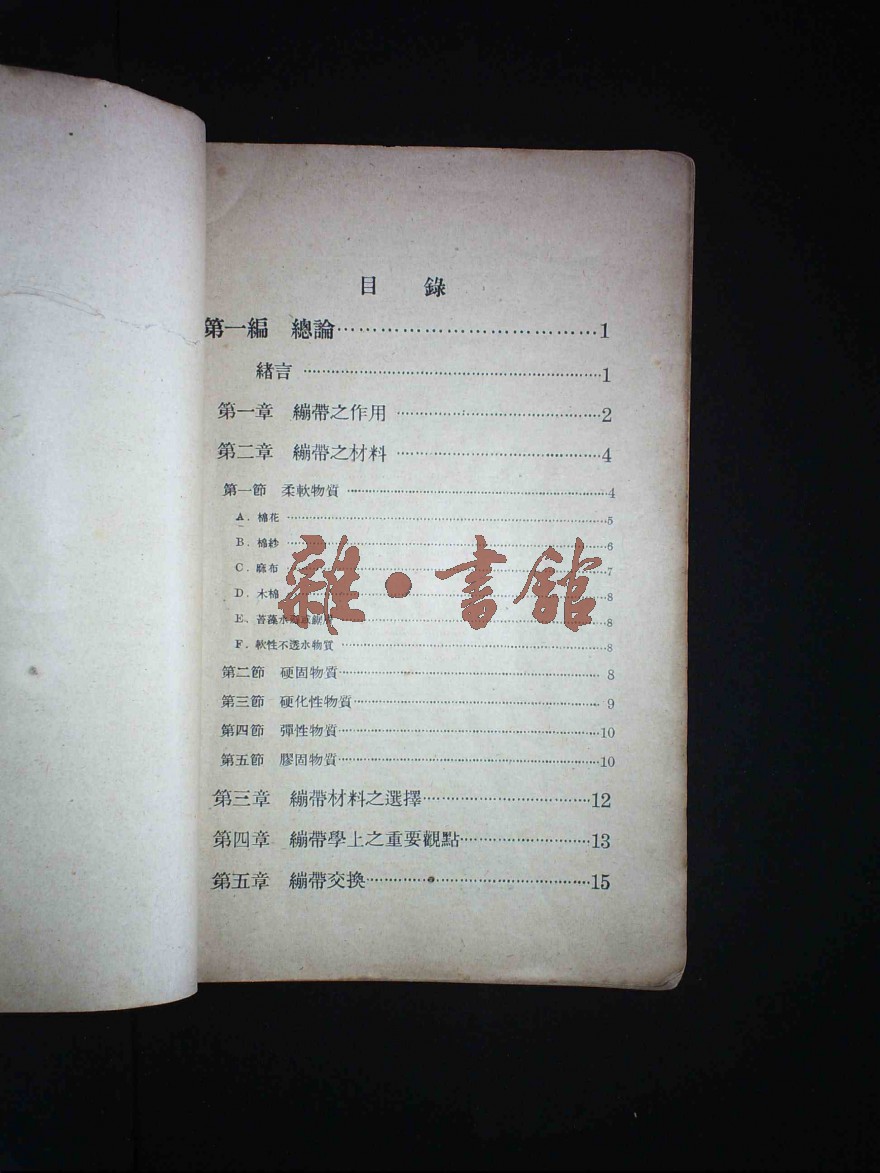 目 錄
第一編 總論………………………………1
緒言………………………………1
第一章 繃帶之作用………………………………2
第二章 繃帶之材料………………………………4
第一節 柔軟物質………………………………4
A. 棉花………………………………5
B. 棉紗………………………………6
C. 麻布………………………………7
D. 木棉………………………………8
E. 苔藻水………………………………8
F. 軟性不透水物質………………………………8
第二節 硬固物質………………………………8
第三節 硬化性物質………………………………9
第四節 彈性物質………………………………10
第五節 膠固物質………………………………10
第三章 繃帶材料之選擇………………………………12
第四章 繃帶學上之重要觀點………………………………13
第五章 繃帶交換………………………………15
雜·書館